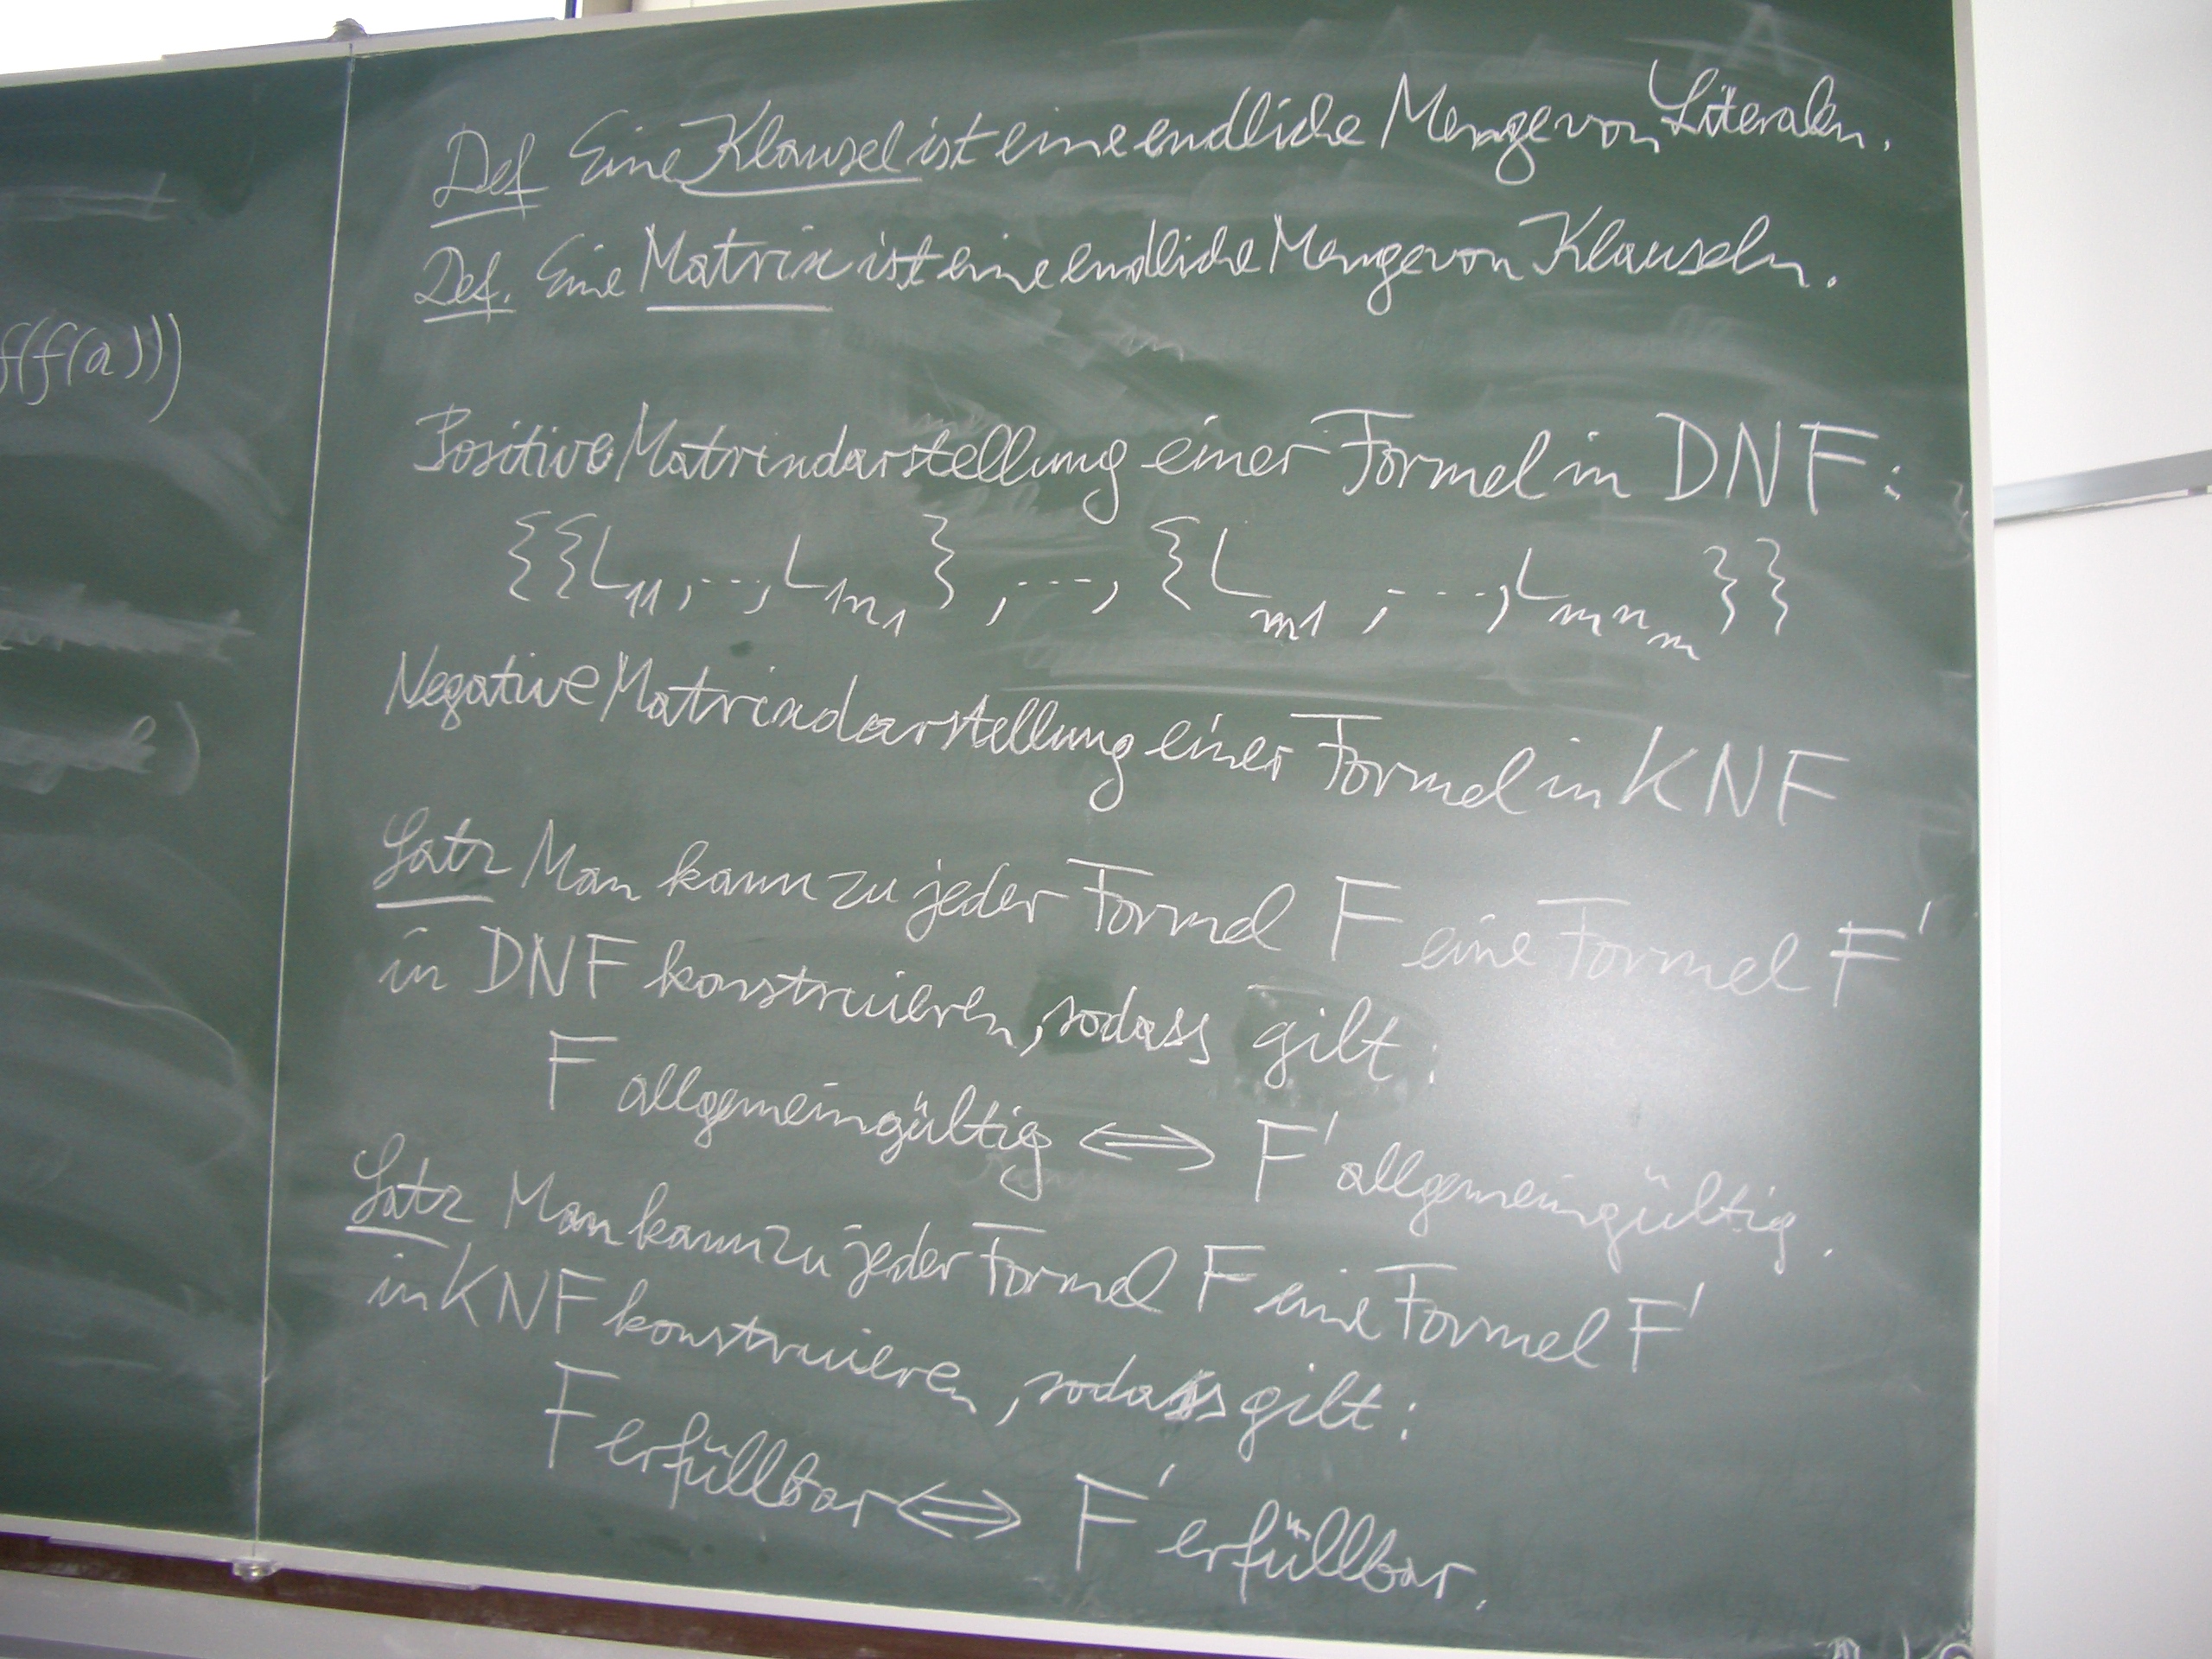 f(f(a)))
Def Eine Klausel ist eine endliche Menge von Literalen.
Def. Eine Matrix ist eine endliche Menge von Klauseln.
Positive Matrixdarstellung einer Formel in DNF:
{{L₁₁, ..., L₁ₙ₁}, ..., {Lₘ₁, ..., Lₘₙₘ}}
Negative Matrixdarstellung einer Formel in KNF
Satz Man kann zu jeder Formel F eine Formel F'
in DNF konstruieren, sodass gilt:
F allgemeingültig ⟺ F' allgemeingültig.
Satz Man kann zu jeder Formel F eine Formel F'
in KNF konstruieren, sodass gilt:
F erfüllbar ⟺ F' erfüllbar.